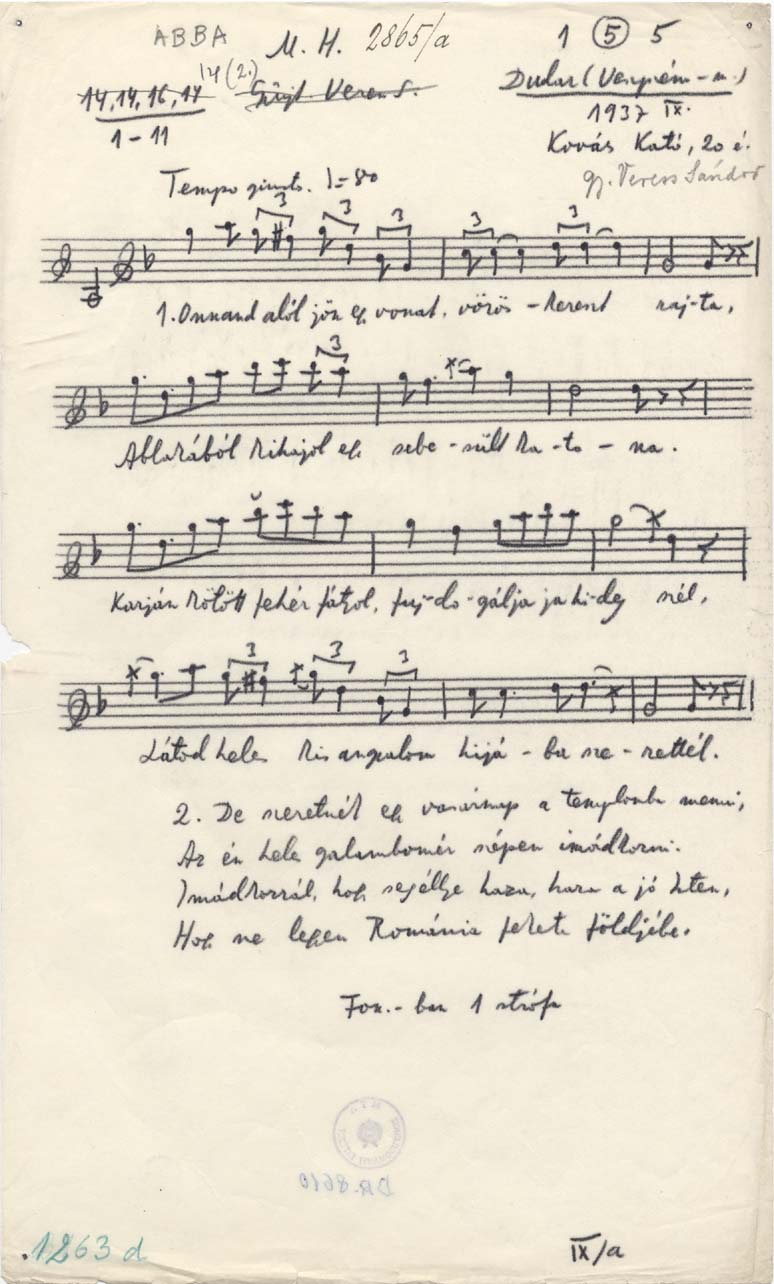 ABBA M. H. 2865/a 1 5 5
14, 14, 16, 14 14(2.) Gyűjt. Veress S. Dudar (Veszprém-m.)
1-11 1937 IX.
Kovás Kató, 20 é.
Tempo giusto. ♩=80 gy. Veress Sándor
3 3 3 3 3
1. Onnand alól jön egy vonat, vörös-kereszt raj-ta,
3
Ablakából kihajol egy sebe-sült ka-to-na.
Karján kötött fehér fátyol, fuj-do-gálja ja hi-deg szél,
3 3 3
Látod keles kis angyalom hijá-ba sze-rettél.
2. De szeretnék egy vasárnap a templomba menni,
Az én keles galambomér szépen imádkozni.
Imádkozzál, hogy segéllje haza, haza a jó Isten,
Hogy ne legyen Románia fekete földjébe.
Fon.-ban 1 strófa
DR-8610
1263 d IX/a